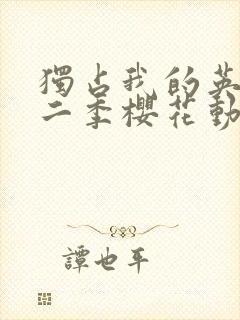 獨占我的英
二季櫻花動
譚也平